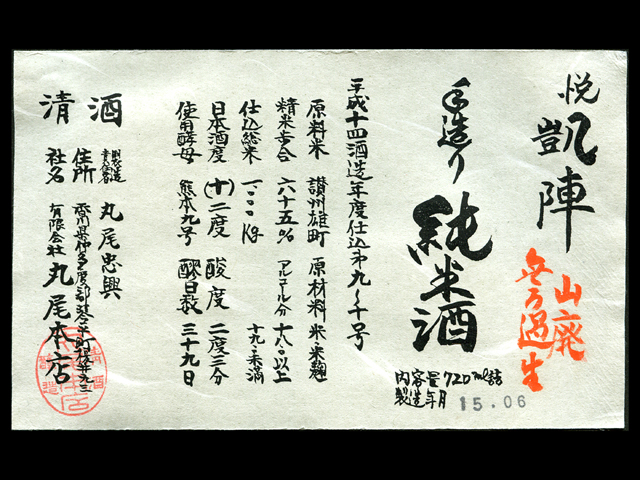 悦凱陣
山廃
無ろ過生
手造り
純米酒
内容量720ml詰
製造年月 15.06
平成十四酒造年度仕込第九〜十号
原料米 讃州雄町 原材料 米・米麹
精米歩合 六十五% アルコール分 十八.〇以上
仕込総米 一〇〇〇kg 十九.〇未満
日本酒度 (十)十二度 酸度 二度三分
使用酵母 熊本九号 醪日数 三十九日
清酒
製造
責任者 丸尾忠興
住所 香川県仲多度郡琴平町榎井九三
社名 有限会社 丸尾本店